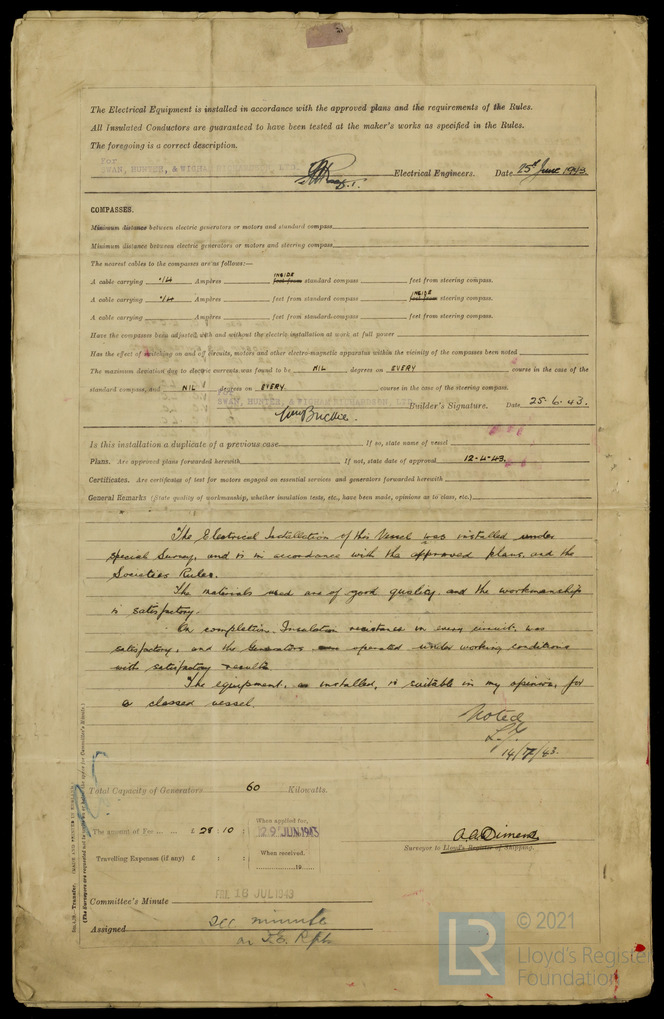 The Electrical Equipment is installed in accordance with the approved plans and the requirements of the Rules.
All Insulated Conductors are guaranteed to have been tested at the maker's works as specified in the Rules.
The foregoing is a correct description.
For
SWAN, HUNTER, & WIGHAM RICHARDSON, LTD.
Electrical Engineers. Date 25th June 1943.
COMPASSES.
Minimum distance between electric generators or motors and standard compass
Minimum distance between electric generators or motors and steering compass
The nearest cables to the compasses are as follows:—
A cable carrying .14 Ampères INSIDE feet from standard compass feet from steering compass.
A cable carrying .14 Ampères feet from standard compass INSIDE feet from steering compass.
A cable carrying Ampères feet from standard compass feet from steering compass.
Have the compasses been adjusted with and without the electric installation at work at full power
Has the effect of switching on and off circuits, motors and other electro-magnetic apparatus within the vicinity of the compasses been noted
The maximum deviation due to electric currents was found to be NIL degrees on EVERY course in the case of the
standard compass, and NIL degrees on EVERY course in the case of the steering compass.
For
SWAN, HUNTER, & WIGHAM RICHARDSON, LTD.
Builder's Signature. Date 25-6-43.
Is this installation a duplicate of a previous case If so, state name of vessel
Plans. Are approved plans forwarded herewith If not, state date of approval 12-4-43.
Certificates. Are certificates of test for motors engaged on essential services and generators forwarded herewith
General Remarks (State quality of workmanship, whether insulation tests, etc., have been made, opinions as to class, etc.)
The Electrical Installation of this Vessel was installed under
special Survey, and is in accordance with the approved plans, and the
Societies Rules.
The materials used are of good quality, and the workmanship
is satisfactory.
On completion, Insulation resistance in every circuit, was
satisfactory, and the Generators operated under working conditions
with satisfactory results.
The equipment, as installed, is suitable in my opinion, for
a classed vessel.
Noted
14/7/43.
Total Capacity of Generators 60 Kilowatts.
The amount of Fee ... ... £ 28 : 10 :
When applied for,
29 JUN 1943
Travelling Expenses (if any) £ : :
When received.
19
A.C. Diment
Surveyor to Lloyd's Register of Shipping.
Committee's Minute FRI. 16 JUL 1943
Assigned see minute
on F.E. Rpt.
Transfer. (MADE AND PRINTED IN ENGLAND.)
(The Surveyors are requested not to write on or below the space for Committee's Minute.)
© 2021
Lloyd's Register
Foundation
LR